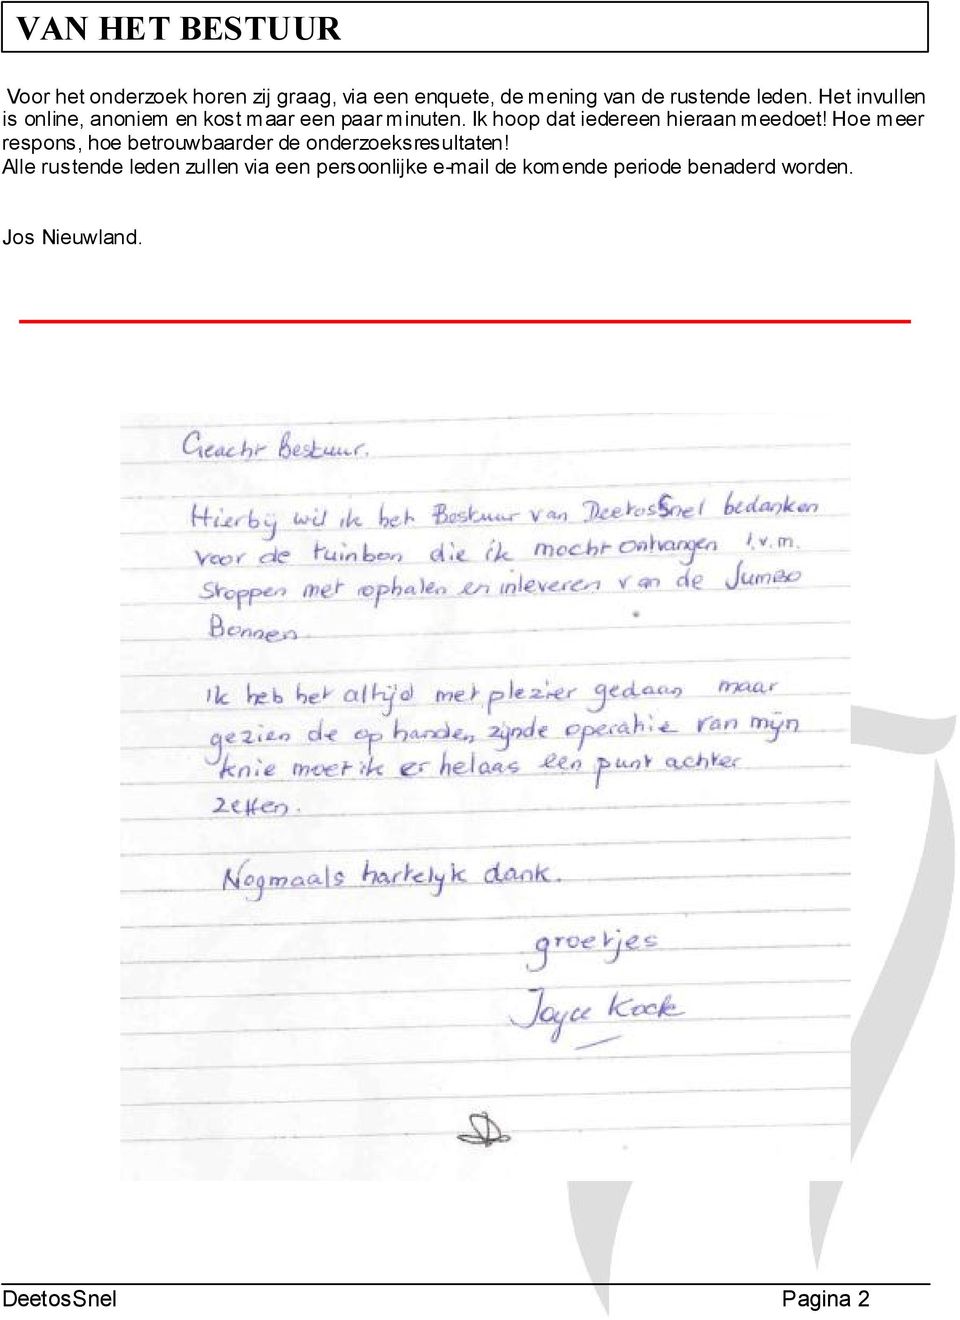 VAN HET BESTUUR
Voor het onderzoek horen zij graag, via een enquete, de mening van de rustende leden. Het invullen
is online, anoniem en kost maar een paar minuten. Ik hoop dat iedereen hieraan meedoet! Hoe meer
respons, hoe betrouwbaarder de onderzoeksresultaten!
Alle rustende leden zullen via een persoonlijke e-mail de komende periode benaderd worden.
Jos Nieuwland.
Geacht Bestuur.
Hierbij wil ik het Bestuur van DeetosSnel bedanken
voor de tuinbon die ik mocht ontvangen i.v.m.
Stoppen met ophalen en inleveren van de Jumbo
Bonnen
Ik heb het altijd met plezier gedaan maar
gezien de op handen zijnde operatie van mijn
knie moet ik er helaas een punt achter
zetten.
Nogmaals hartelijk dank.
groetjes
Joyce Kock
DeetosSnel Pagina 2